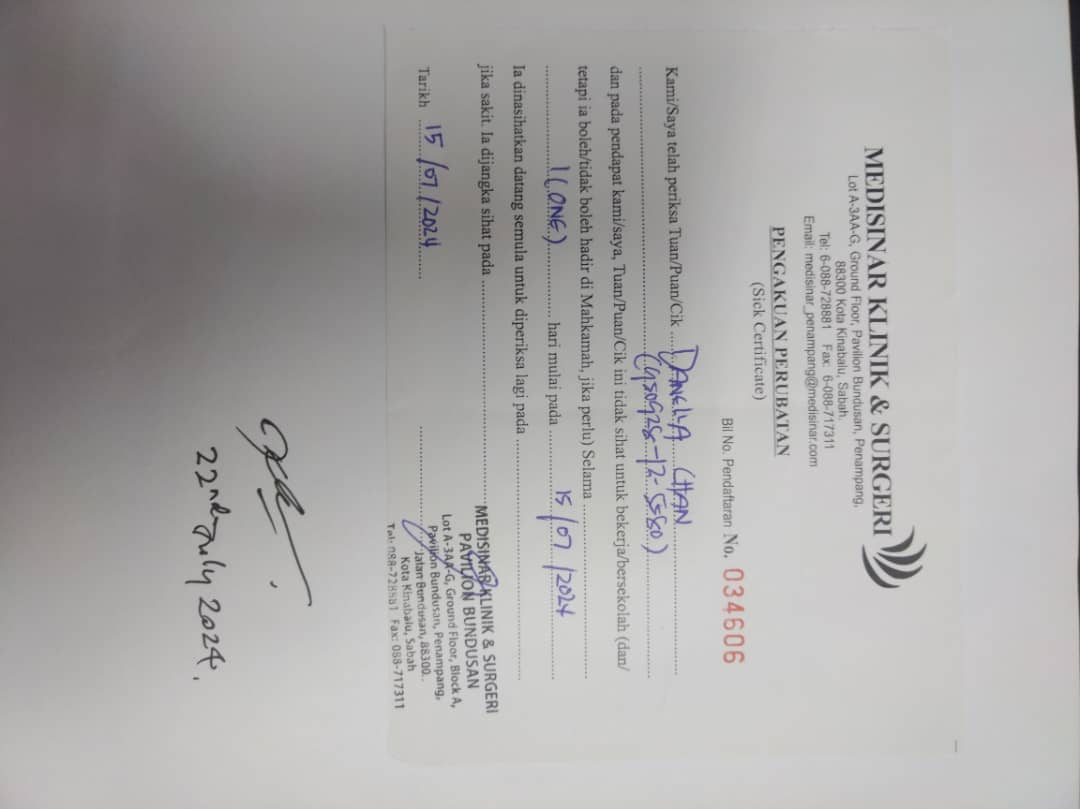 MEDISINAR KLINIK & SURGERI
Lot A-3AA-G, Ground Floor, Pavilion Bundusan, Penampang,
88300 Kota Kinabalu, Sabah.
Tel: 6-088-728881 Fax: 6-088-717311
Email: medisinar_penampang@medisinar.com
PENGAKUAN PERUBATAN
(Sick Certificate)
Bil No. Pendaftaran No. 034606
Kami/Saya telah periksa Tuan/Puan/Cik ..... CHAN
dan pada pendapat kami/saya, Tuan/Puan/Cik ini tidak sihat untuk bekerja/bersekolah (dan/
tetapi ia boleh/tidak boleh hadir di Mahkamah, jika perlu) Selama
1 (ONE) hari mulai pada 15/07/2024
Ia dinasihatkan datang semula untuk diperiksa lagi pada
jika sakit. Ia dijangka sihat pada
Tarikh 15/07/2024
MEDISINAR KLINIK & SURGERI
PAVILION BUNDUSAN
Lot A-3AA-G, Ground Floor, Block A,
Pavilion Bundusan, Penampang,
Jalan Bundusan, 88300.
Kota Kinabalu, Sabah
Tel: 088-728881 Fax: 088-717311
22nd July 2024.